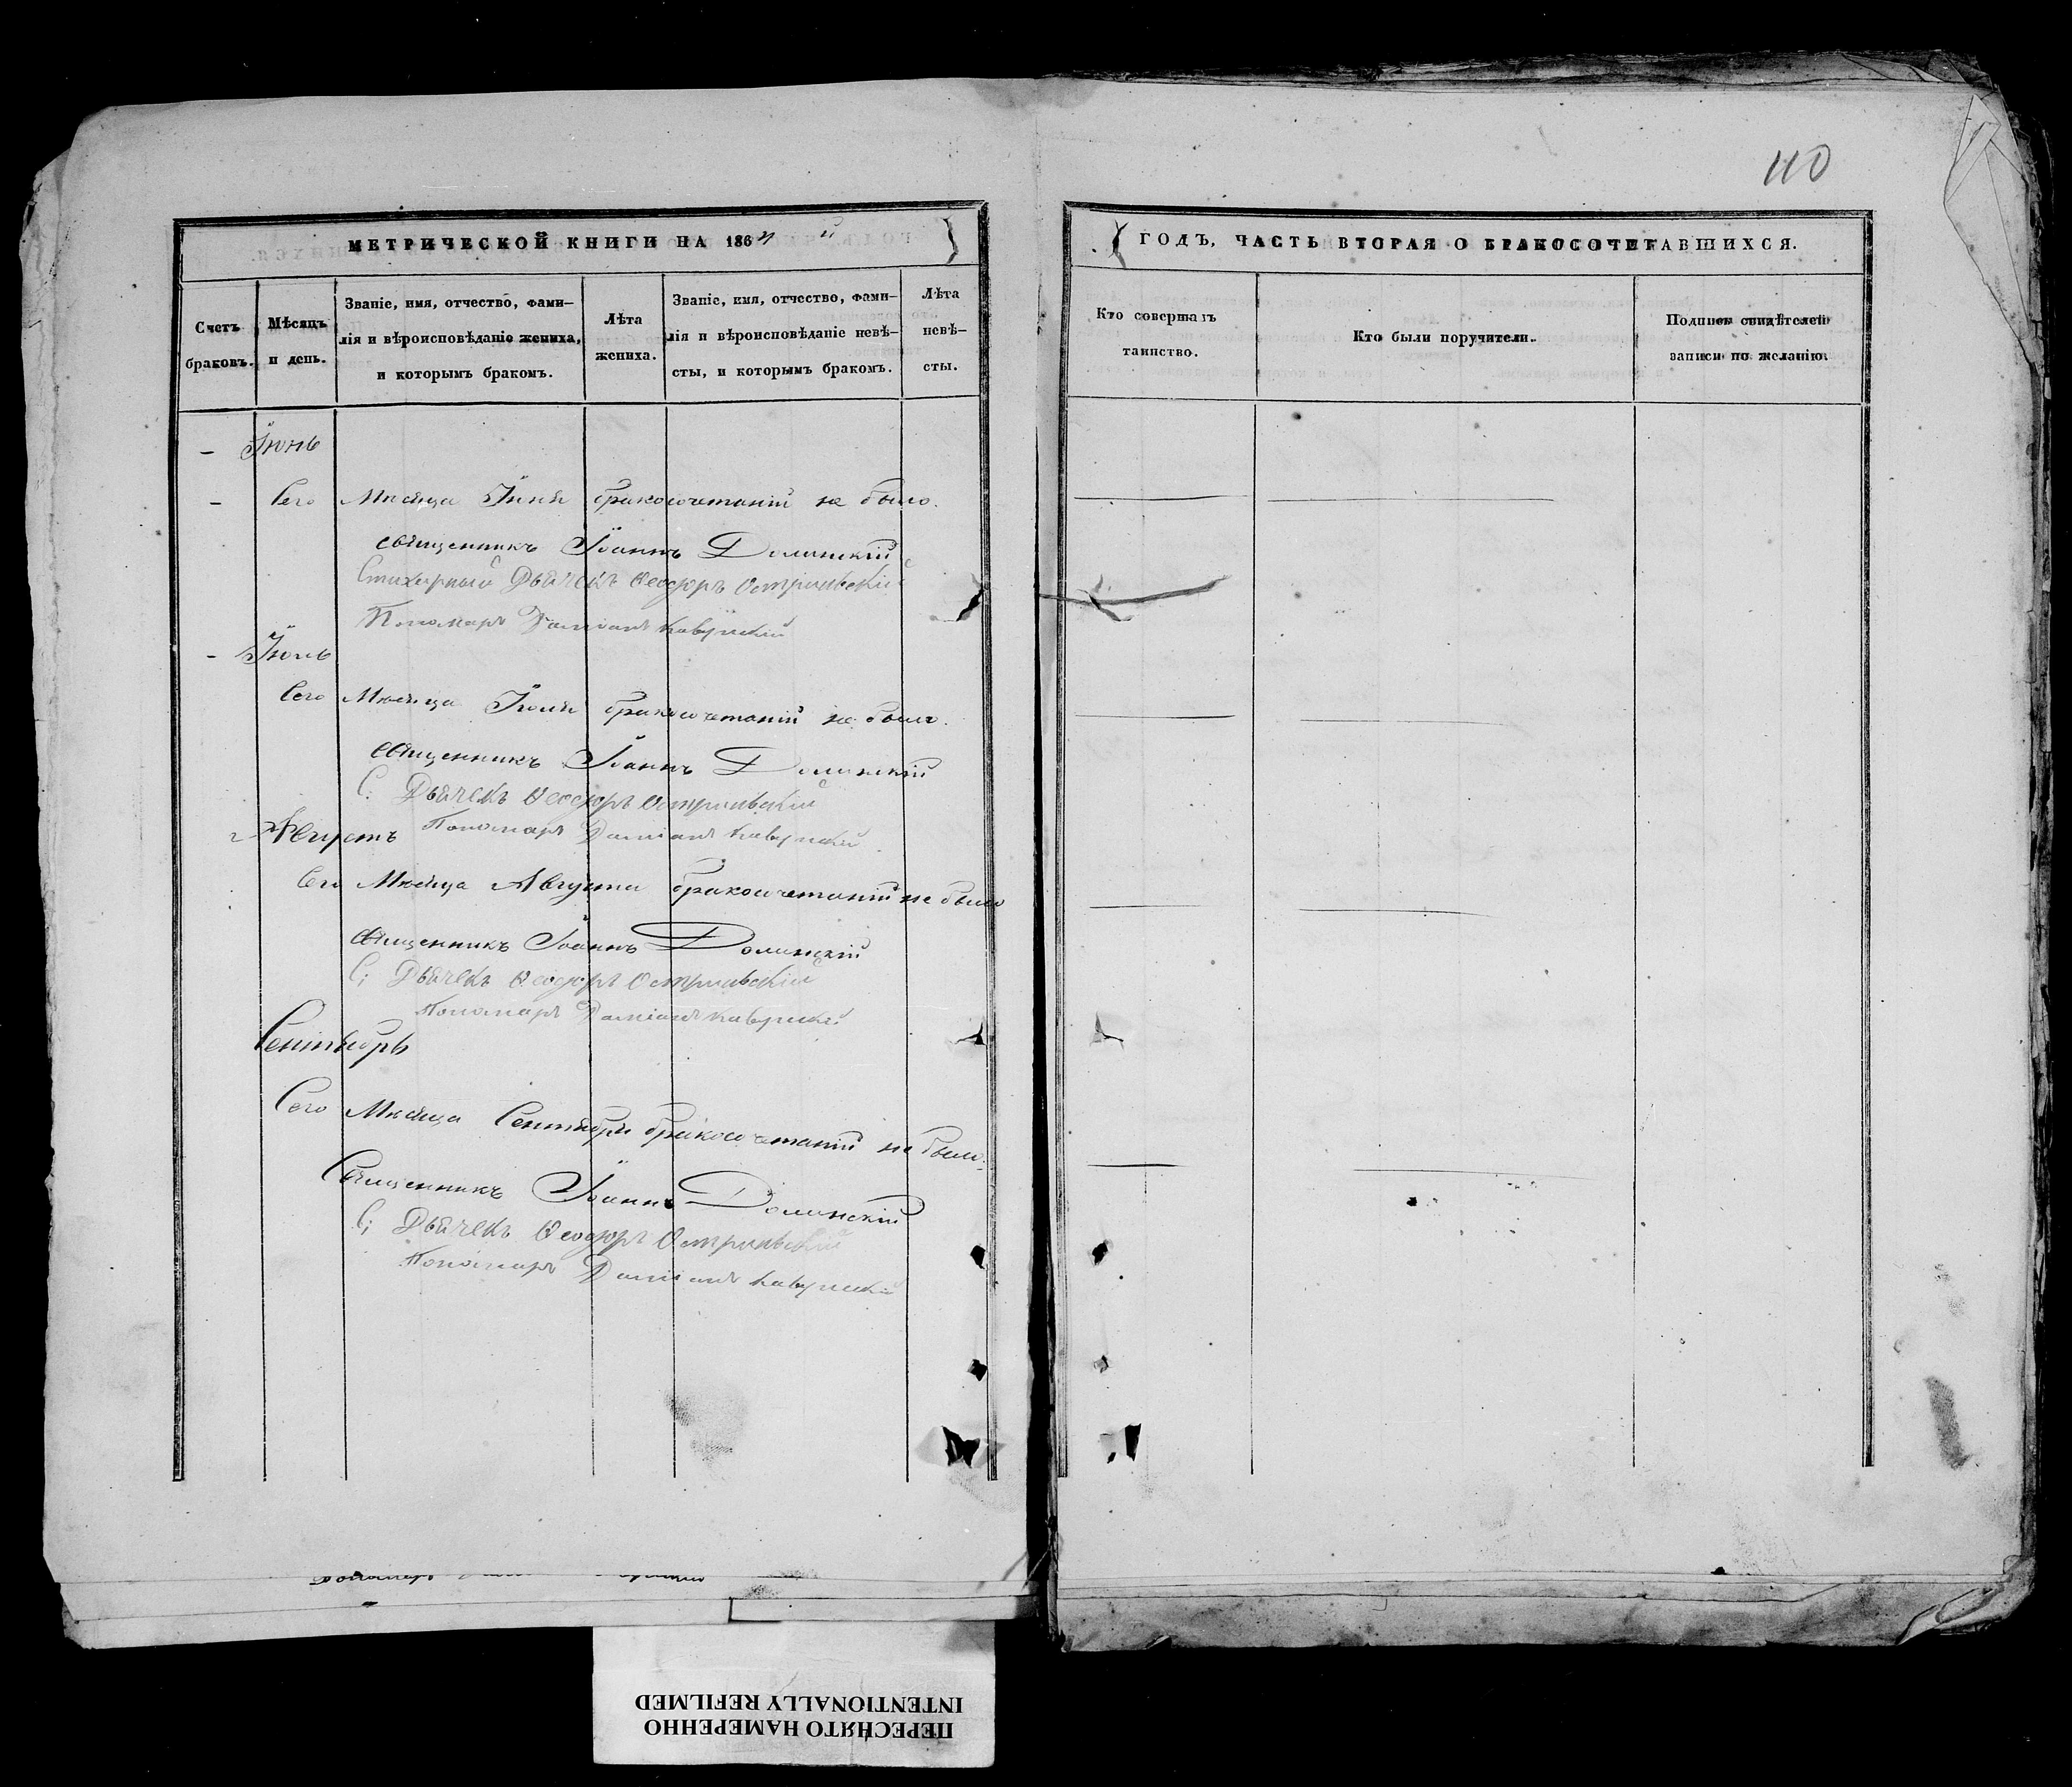 110
МЕТРИЧЕСКОЙ КНИГИ НА 186
ГОДЪ, ЧАСТЬ ВТОРАЯ О БРАКОСОЧЕТАВШИХСЯ.
Счетъ браковъ.
Мѣсяцъ и день.
Званіе, имя, отчество, фами-
лія и вѣроисповѣданіе жениха,
и которымъ бракомъ.
Лѣта жениха.
Званіе, имя, отчество, фами-
лія и вѣроисповѣданіе невѣ-
сты, и которымъ бракомъ.
Лѣта невѣ-
сты.
Кто совершалъ
таинство.
Кто были поручители.
Подпись свидѣтелей
записи по желанію.
– Іюнь
– Сего Мѣсяца Іюня бракосочетаній не было.
Священникъ Іоаннъ Долинскій
Стихарный Дьячекъ Ѳеодоръ
Пономарь Даміанъ
– Іюль
Сего Мѣсяца Іюля бракосочетаній не было.
Священникъ Іоаннъ Долинскій
С: Дьячекъ Ѳеодоръ
Августъ
Пономарь Даміанъ
Сего Мѣсяца Августа бракосочетаній не было
Священникъ Іоаннъ Долинскій
С; Дьячекъ Ѳеодоръ
Пономарь Даміанъ
Сентябрь
Сего Мѣсяца Сентября бракосочетаній не было.
Священникъ Іоаннъ Долинскій
С; Дьячекъ Ѳеодоръ
Пономарь Даміанъ
ПЕРЕСНЯТО НАМЕРЕННО
INTENTIONALLY REFILMED